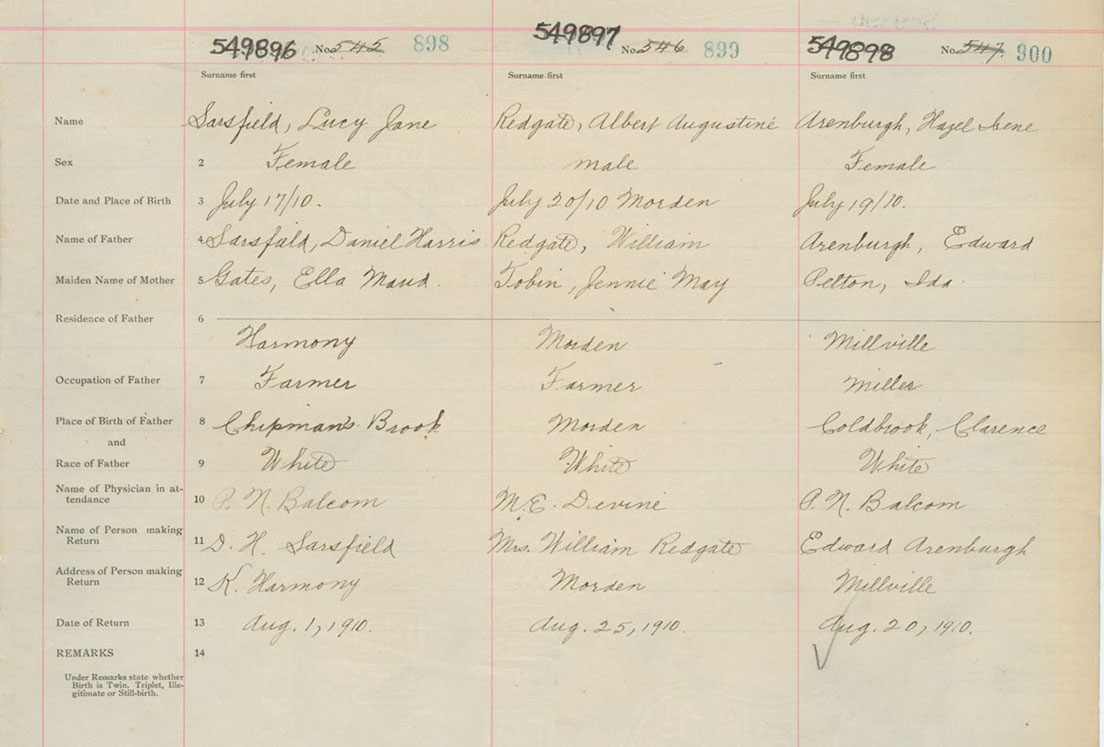 549896 No. 545 898 549897 No. 546 899 549898 No. 547. 900
Surname first Surname first Surname first
Name Sarsfield, Lucy Jane Redgate, Albert Augustine Arenburgh, Hazel Irene
Sex 2 Female male Female
Date and Place of Birth 3 July 17/10. July 20/10 Morden July 19/10.
Name of Father 4 Sarsfield, Daniel Harris Redgate, William Arenburgh, Edward
Maiden Name of Mother 5 Gates, Ella Maud. Tobin, Jennie May Pelton, Ida
Residence of Father 6
Harmony Morden Millville
Occupation of Father 7 Farmer Farmer Miller
Place of Birth of Father 8 Chipman's Brook Morden Coldbrook, Clarence
and
Race of Father 9 White White White
Name of Physician in at-
tendance 10 P. N. Balcom M. E. Devine P. N. Balcom
Name of Person making
Return 11 D. H. Sarsfield Mrs. William Redgate Edward Arenburgh
Address of Person making
Return 12 K. Harmony Morden Millville
Date of Return 13 Aug. 1, 1910. Aug. 25, 1910. Aug. 20, 1910.
REMARKS 14
Under Remarks state whether
Birth is Twin, Triplet, Ille-
gitimate or Still-birth.